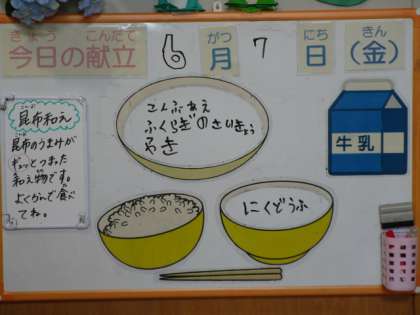 きょう こんだて
今日の献立
6
がつ
月
7
にち
日
きん
(金)
こんぶあえ
ふくらぎのさいきょう
やき
にくどうふ
牛乳
こんぶ あ
昆布和え
昆布のうまみが
ギュッとつまった
和え物です。
よくかんで食べ
てね。